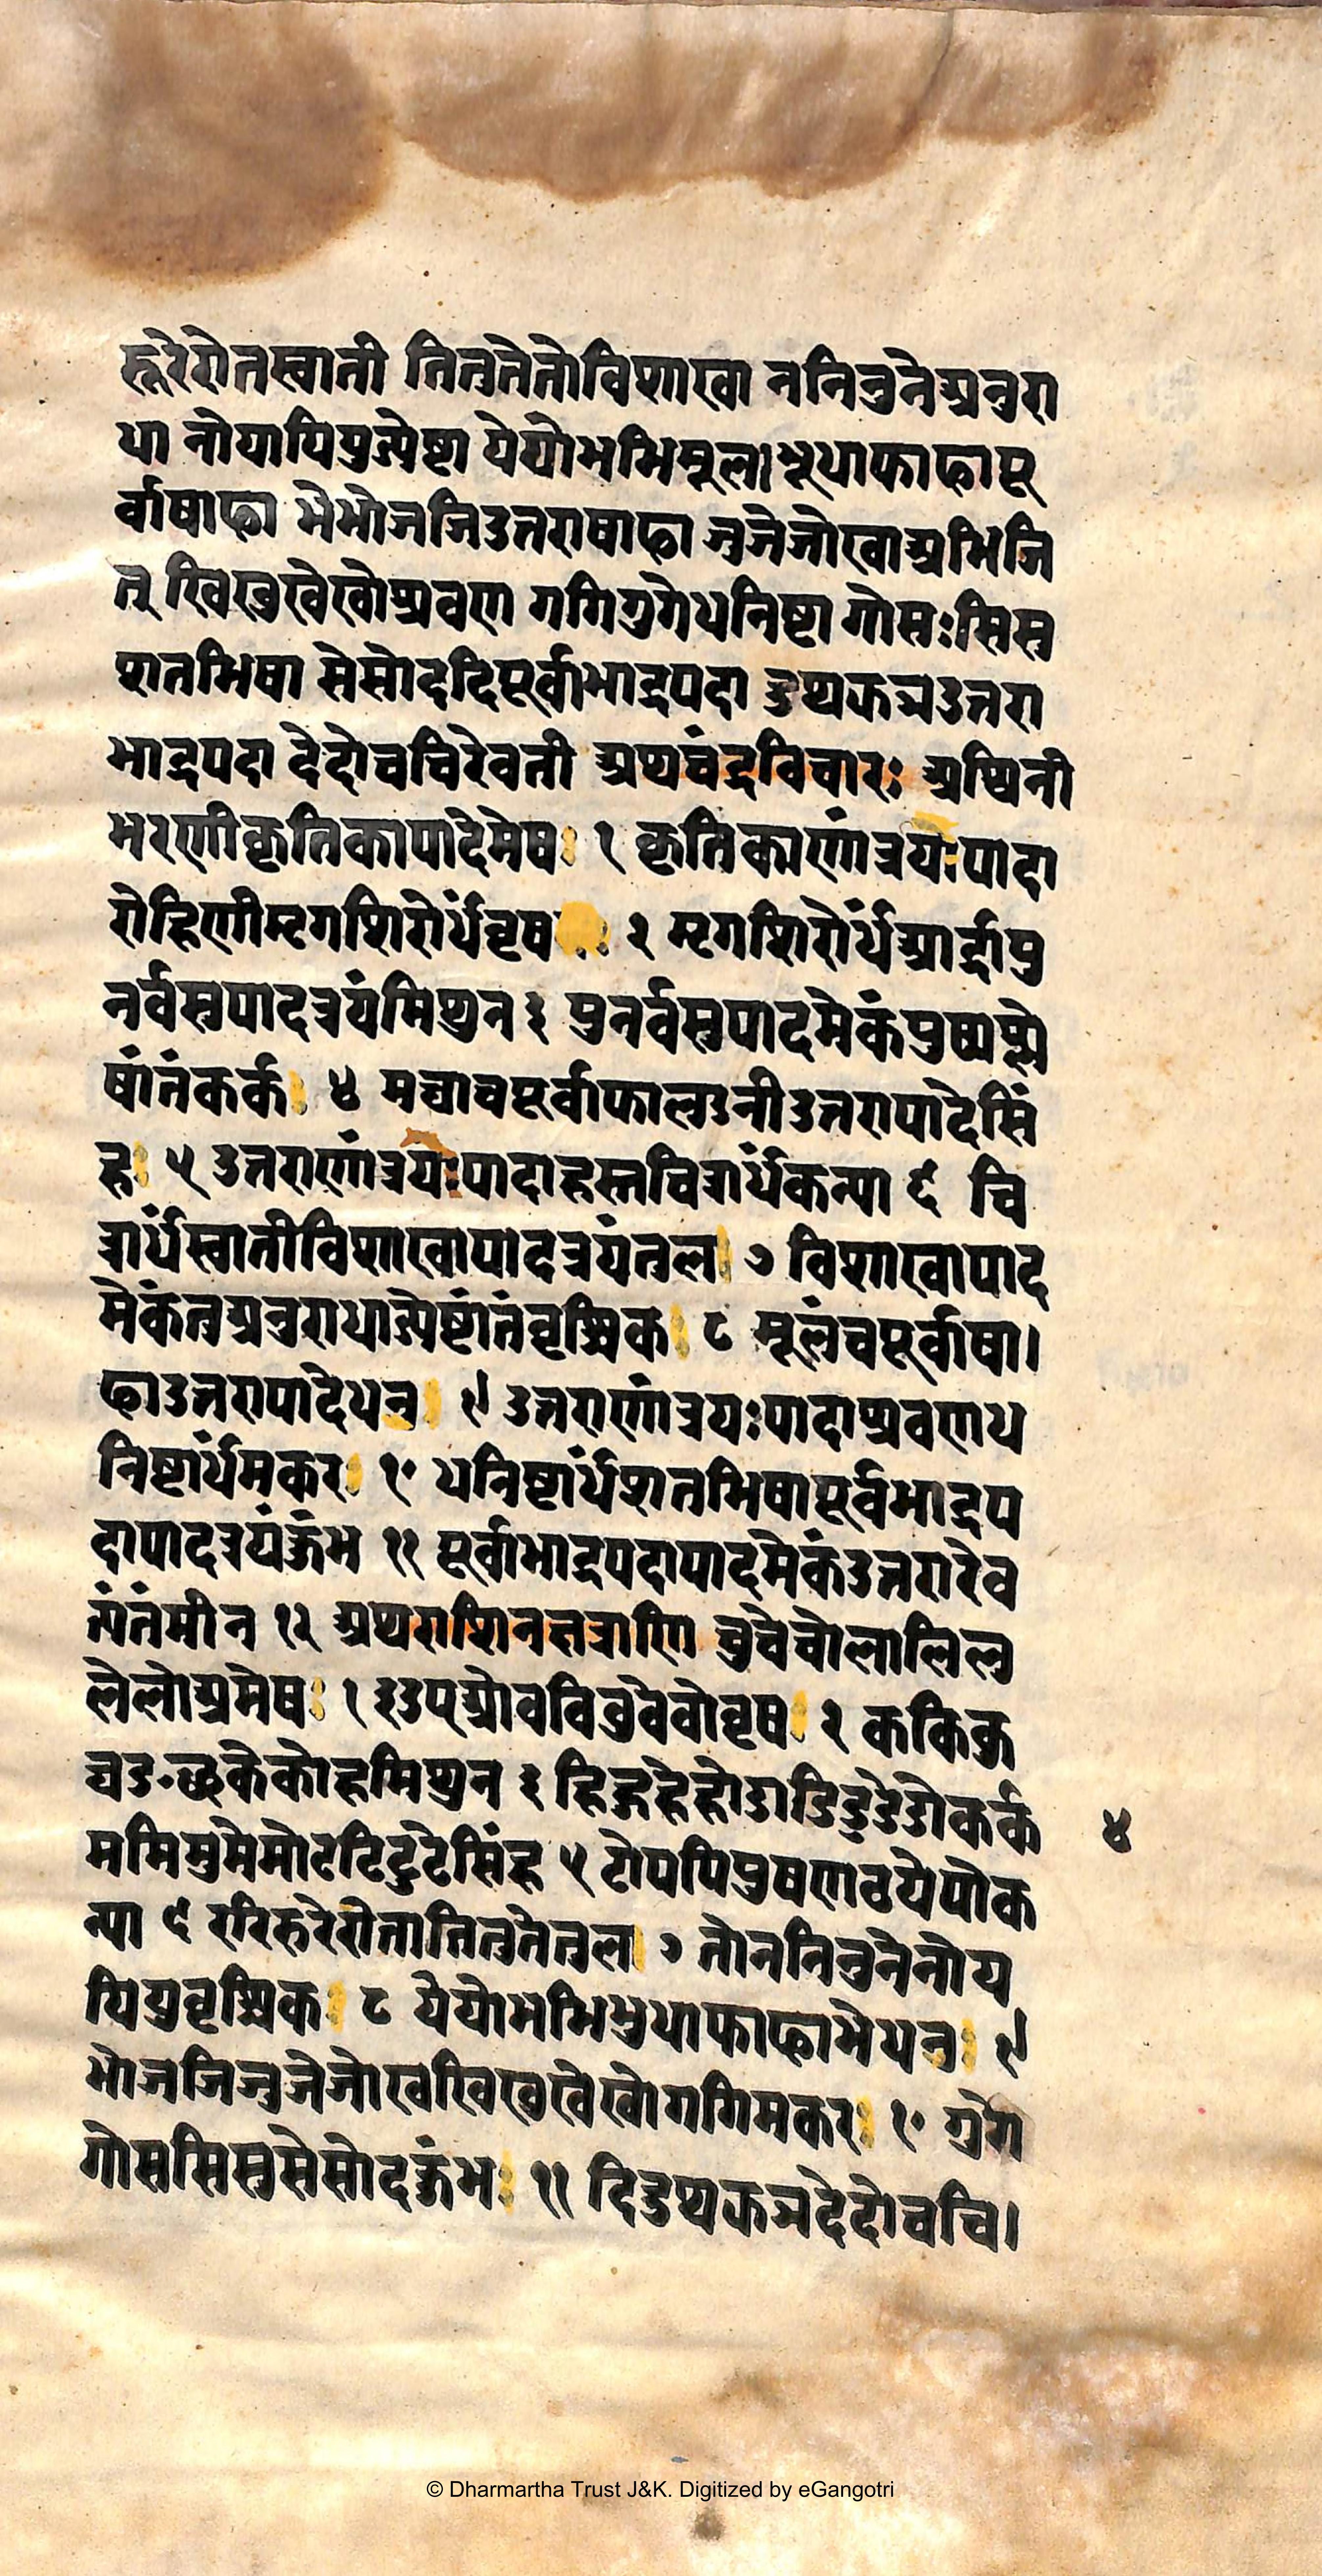 रूरेरोतस्वाती तितुतेतोविशाखा ननिनुनेअनुरा
धा नोयायियुज्येष्टा येयोभभिमूल।भूधाफाढापू
र्वाषाढा भेभोजजिउत्तराषाढा जुजेजोखाअभिजि
त् खिखुखेखोश्रवण गगिगुगेधनिष्टा गोसःसिसु
शतभिषा सेसोददिपूर्वाभाद्रपदा दुथझञउत्तरा
भाद्रपदा देदोचचिरेवती अथचंद्रविचारः अश्विनी
भरणीकृतिकापादेमेषः १ कृतिकाणांत्रयःपादा
रोहिणीमृगशिरोर्धंवृषः २ मृगशिरोर्धंआर्द्रापु
नर्वसुपादत्रयंमिथुन ३ पुनर्वसुपादमेकंपुष्यश्ले
षांतंकर्कः ४ मघाचपूर्वाफाल्गुनीउत्तरापादेसिं
हः ५ उत्तराणांत्रयःपादाहस्तचित्रार्धंकन्या ६ चि
त्रार्धंस्वातीविशाखापादत्रयंतुलः ७ विशाखापाद
मेकंतुअनुराधाज्येष्टांतंवृश्चिकः ८ मूलंचपूर्वाषा।
ढाउत्तरापादेधनुः ९ उत्तराणांत्रयःपादाश्रवणध
निष्टार्धंमकरः १० धनिष्टार्धंशतभिषापूर्वभाद्रप
दापादत्रयंकुंभ ११ पूर्वाभाद्रपदापादमेकंउत्तरारेव
त्यंतंमीन १२ अथराशिनक्षत्राणि चुचेचोलालिलु
लेलोअमेषः १ इउएओवविवुवेवोवृषः २ ककिकु
घङ॰छकेकोहमिथुन ३ हिहुहेहोडाडिडुडेडोकर्क
ममिमुमेमोटटिटुटेसिंह ५ टोपपिपुषणठपेपोक
न्या ६ ररिरुरेरोतातितुतेतुलः ७ तोननिनुनेनोय
यियुवृश्चिकः ८ येयोभभिभुधाफाढाभेधनुः ९
भोजजिजुजेजोखखिखुखेखोगगिमकरः १० गुगे
गोससिसुसेसोदकुंभः ११ दिदुथझञदेदोचचि।
४
© Dharmartha Trust J&K. Digitized by eGangotri